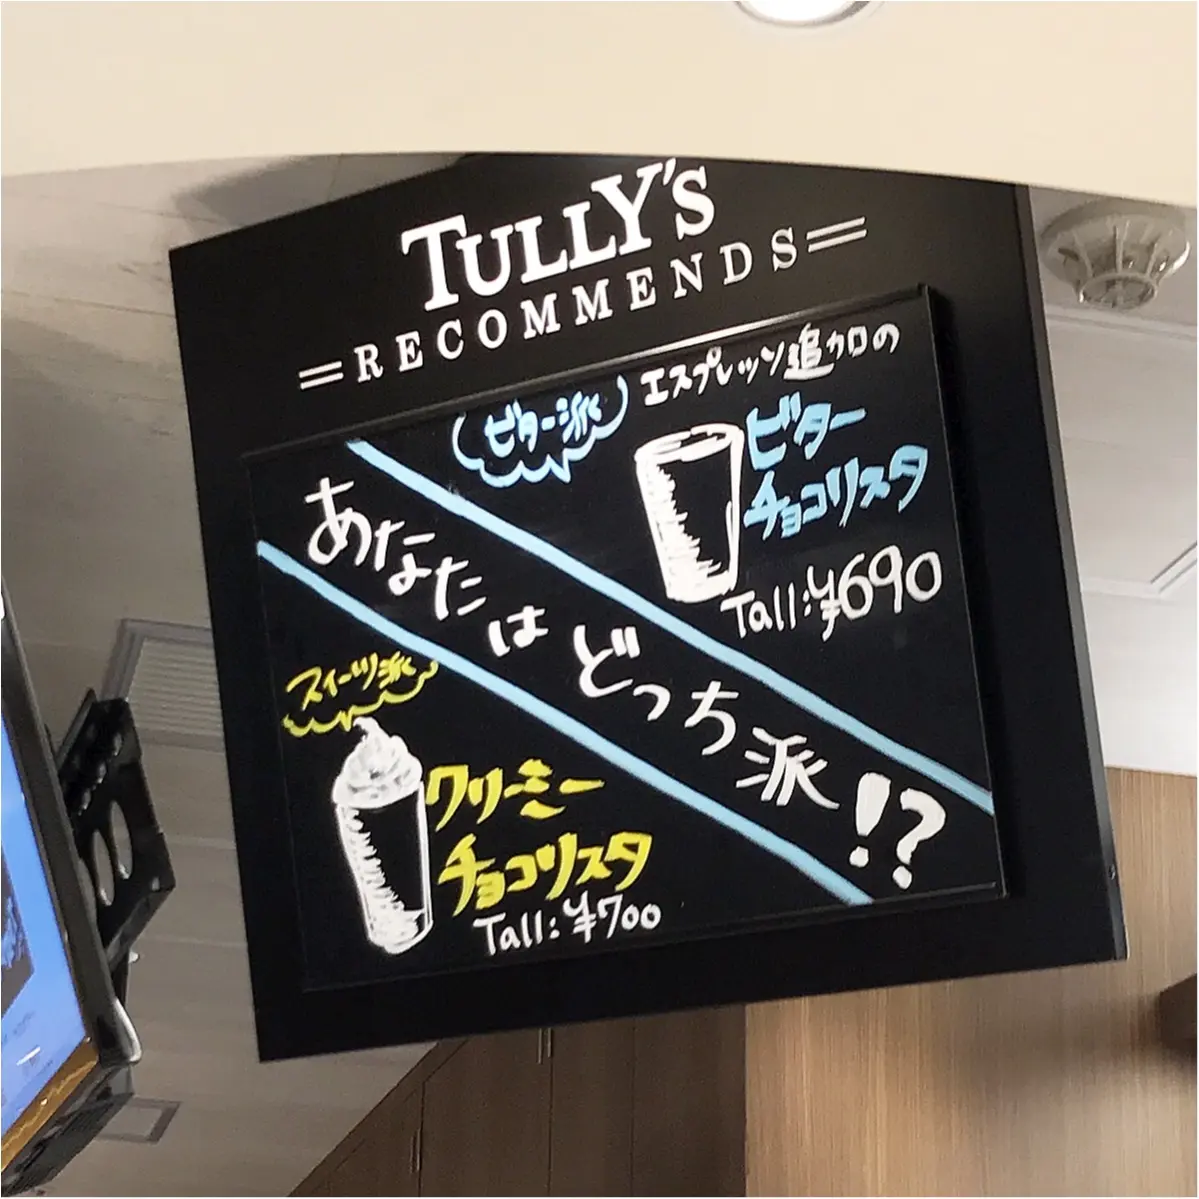 TULLY'S
RECOMMENDS
ビター派
エスプレッソ追加の
ビター
チョコリスタ
Tall:¥690
あなたは どっち派!?
スイーツ派
クリーミー
チョコリスタ
Tall:¥700